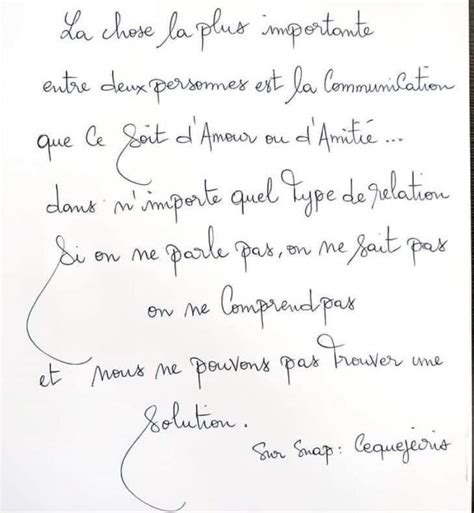 La chose la plus importante
entre deux personnes est la Communication
que Ce Soit d'Amour ou d'Amitié ...
dans n'importe quel Type de relation
Si on ne parle pas, on ne sait pas
on ne Comprend pas
et nous ne pouvons pas Trouver une
Solution.
Sur Snap : Cequejecris